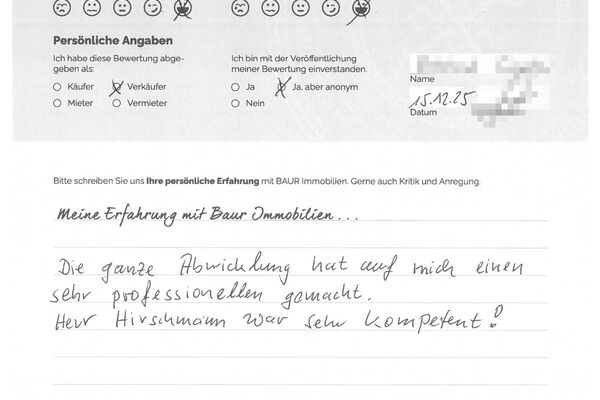 Persönliche Angaben
Ich habe diese Bewertung abge-
geben als:
Käufer Verkäufer
Mieter Vermieter
Ich bin mit der Veröffentlichung
meiner Bewertung einverstanden.
Ja Ja, aber anonym
Nein
Name
15.12.25
Datum
Bitte schreiben Sie uns Ihre persönliche Erfahrung mit BAUR Immobilien. Gerne auch Kritik und Anregung.
Meine Erfahrung mit Baur Immobilien...
Die ganze Abwicklung hat auf mich einen
sehr professionellen gemacht.
Herr Hirschmann war sehr kompetent!